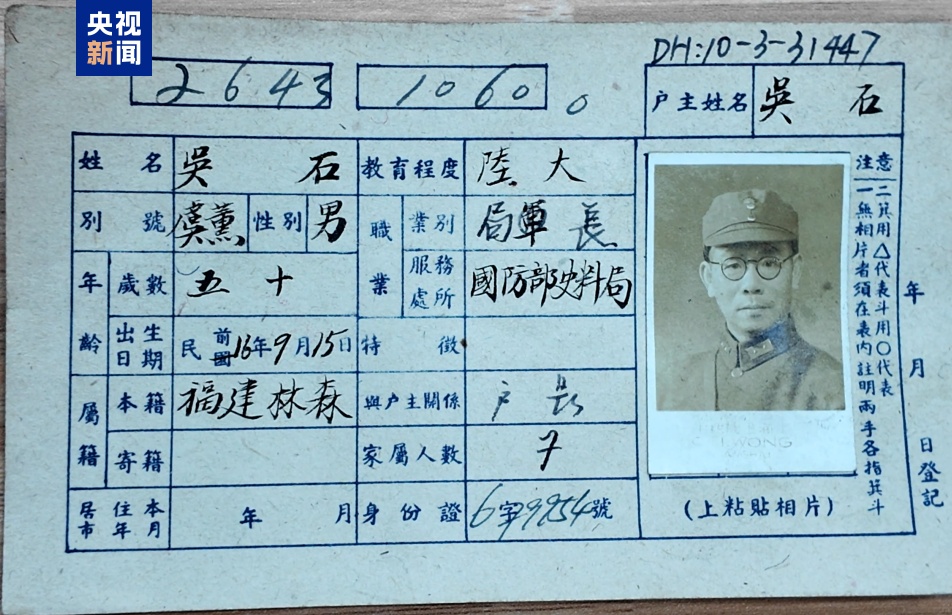 央视
新闻
DH:10-3-31447
2643
1060
户主姓名 吳石
姓名 吳石 教育程度 陸大
別號 虞薰 性別 男 職業 業別 軍 局長
年齡 歲數 五十 服務處所 國防部史料局
出生日期 民國前16年9月15日 特徵
屬籍 本籍 福建林森 與户主關係 户長
寄籍 家屬人數 7
居住本市年月 年 月 身份證 6字9954號
注意
一無相片者須在表內註明兩手各指箕斗
二箕用△代表斗用〇代表
WONG
(上粘貼相片)
年 月 日登記